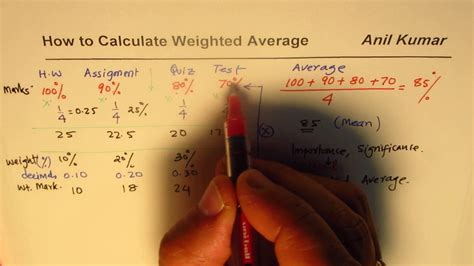 How to Calculate Weighted Average Anil Kumar
H.W Assigment Quiz Test Average
Marks: 100% 90% 80% 70% 100 + 90 + 80 + 70 = 85%
4
1/4 = 0.25 1/4 25% 1/4
25 22.5 20 17 85 (Mean)
Importance, Significance.
weight(%) 10% 20% 30% Average.
decimal 0.10 0.20 0.30
wt. Mark. 10 18 24